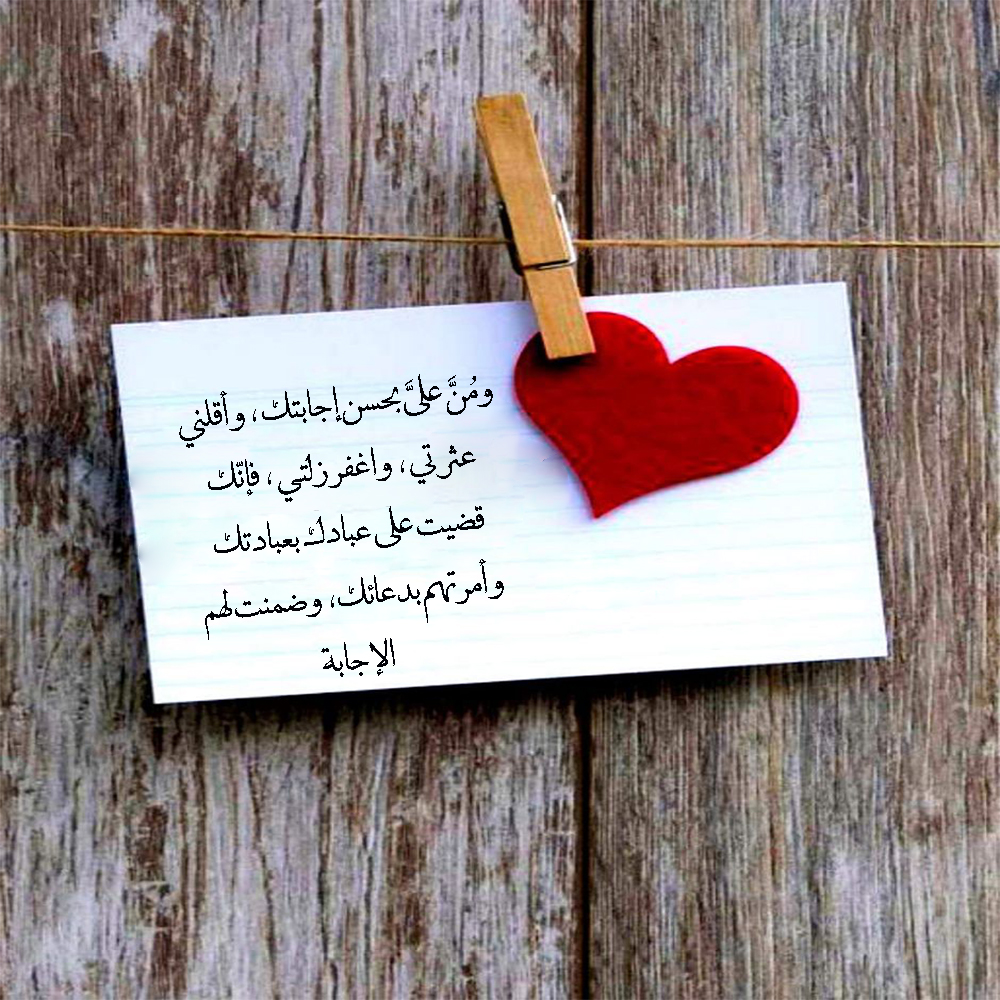 ومُنَّ علىَّ بحسن إجابتك، وأقلني
عثرتي، واغفر زلتي، فإنّك
قضيت على عبادك بعبادتك
وأمرتهم بدعائك، وضمنت لهم
الإجابة